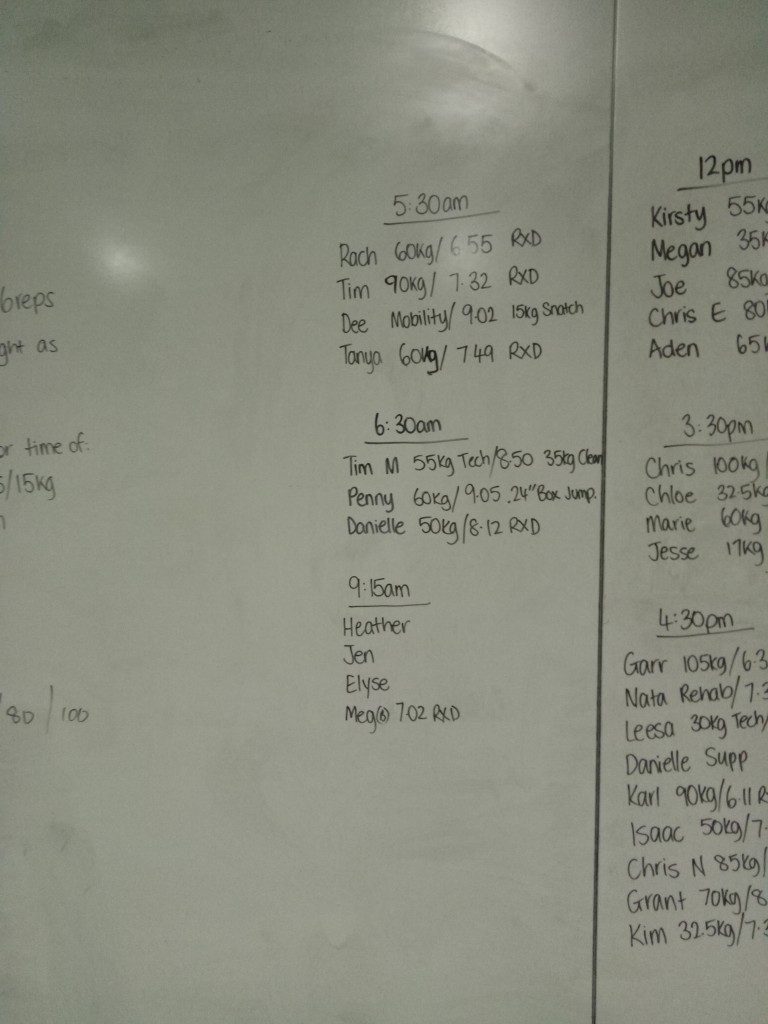 breps
ght as
or time of:
/15kg
/80/100
5:30am
Rach 60kg/6.55 RXD
Tim 90kg/7.32 RXD
Dee Mobility/9.02 15kg Snatch
Tanya 60kg/7.49 RXD
6:30am
Tim M 55kg Tech/8.50 35kg Clean
Penny 60kg/9.05 .24" Box Jump.
Danielle 50kg/8.12 RXD
9:15am
Heather
Jen
Elyse
Meg 7.02 RXD
12pm
Kirsty 55k
Megan 35k
Joe 85kg
Chris E 80
Aden 65k
3:30pm
Chris 100kg/
Chloe 32.5kg
Marie 60kg
Jesse 17kg
4:30pm
Garr 105kg/6.3
Nata Rehab/7.3
Leesa 30kg Tech/
Danielle Supp
Karl 90kg/6.11 R
Isaac 50kg/7.
Chris N 85kg/
Grant 70kg/8
Kim 32.5kg/7.3